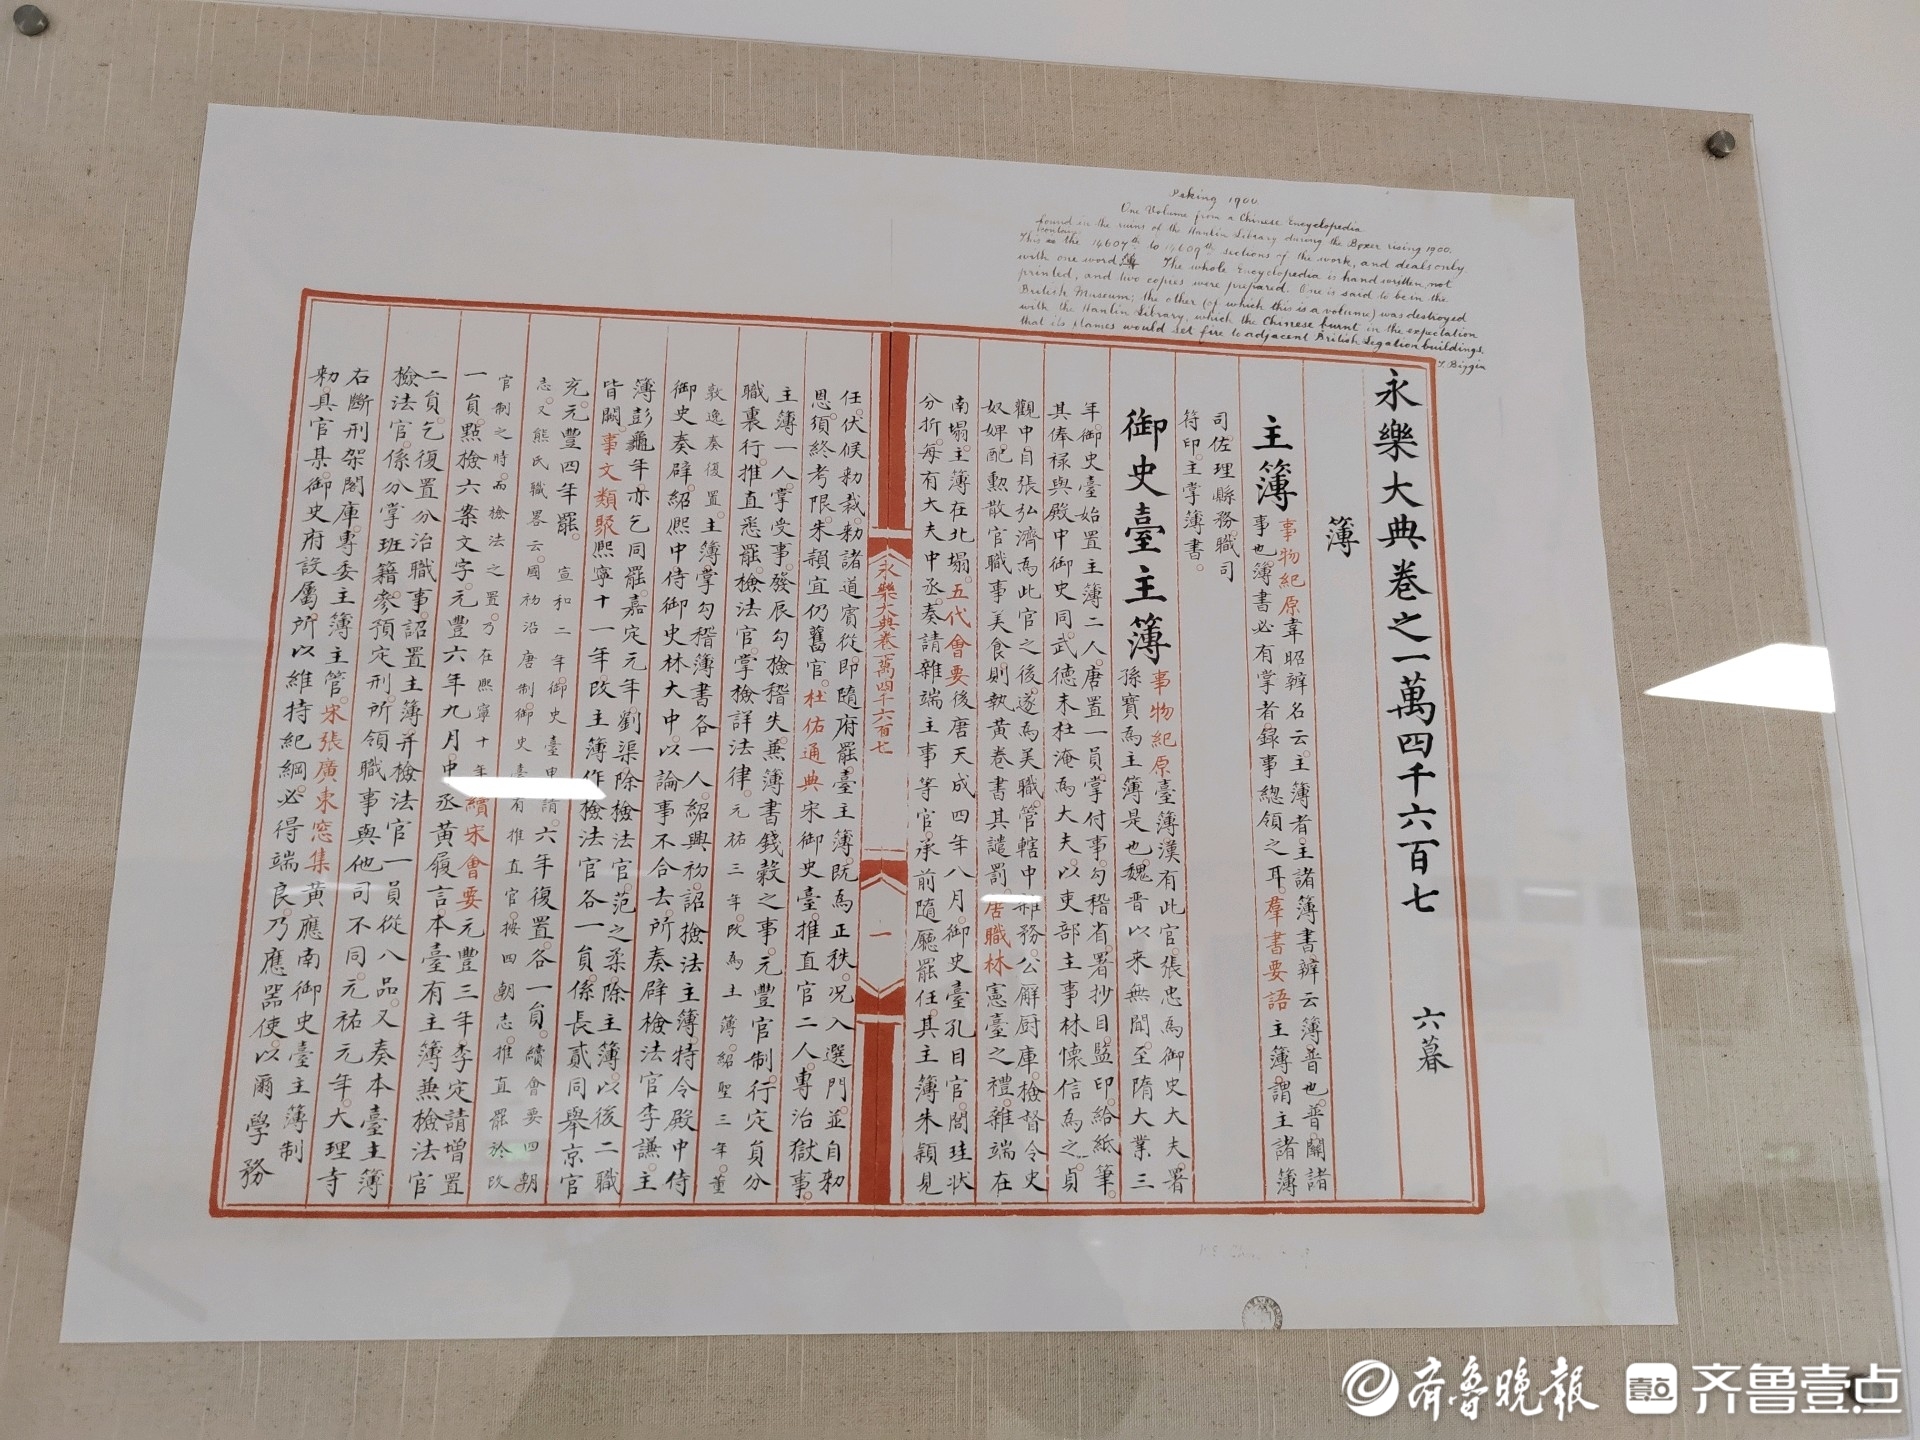 Peking 1900.
One Volume from a Chinese Encyclopedia
found in the ruins of the Hanlin Library during the Boxer rising 1900.
This the 14607th to 14609th sections of the work, and deals only
with one word 簿 The whole Encyclopedia is hand written, not
printed, and two copies were prepared. One is said to be in the
British Museum; the other (of which this is a volume) was destroyed
with the Hanlin Library, which the Chinese burnt in the expectation
that its flames would set fire to adjacent British Legation buildings.
T. Biggin
永樂大典卷之一萬四千六百七 六暮
簿
主簿
事物紀原韋昭辯名云主簿者主諸簿書辯云簿普也普關諸
事也簿書必有掌者錄事總領之耳羣書要語主簿謂主諸簿
司佐理縣務職司
符印主掌簿書
御史臺主簿
事物紀原臺簿漢有此官張忠為御史大夫署
孫寶為主簿是也魏晋以來無聞至隋大業三
年御史臺始置主簿二人唐置一員掌付事勾稽省署抄目監印給紙筆
其俸禄與殿中御史同武德未杜淹為大夫以吏部主事林懷信為之貞
觀中自張弘濟為此官之後遂為美職管轄中雜務公廨厨庫檢督令史
奴婢配勲散官職事美食則執黄卷書其譴罰唐職林憲臺之禮雜端在
南塌主簿在北塌五代會要後唐天成四年八月御史臺孔目官閻珪状
分折每有大夫中丞奏請雜端主事等官承前隨廳罷任其主簿朱穎見
永樂大典卷一萬四千六百七
一
任伏候勑裁勑諸道賓從即隨府罷臺主簿既為正秩况入選門並自勑
恩須終考限朱穎宜仍舊官杜佑通典宋御史臺推直官二人專治獄事
主簿一人掌受事發辰勾檢稽失兼簿書錢穀之事元豐官制行定員分
職裏行推直悉罷檢法官掌檢詳法律元祐三年改為主簿紹聖三年董
敦逸奏復置主簿掌勾稽簿書各一人紹興初詔檢法主簿特令殿中侍
御史奏辟紹熙中侍御史林大中以論事不合去所奏辟檢法官李謙主
簿彭龜年亦乞同罷嘉定元年劉渠除檢法官范之柔除主簿以後二職
皆闕事文類聚熙寧十一年改主簿作檢法官各一員係長貳同舉京官
充元豐四年罷宣和二年御史臺申請六年復置各一員續會要四朝
志又熊氏職畧云國初沿唐制御史臺有推直官按四朝志推直罷於改
官制之時而檢法之置乃在熙寧十年續宋會要元豐三年李定請增置
一員點檢六案文字元豐六年九月中丞黄履言本臺有主簿兼檢法官
二員乞復置分治職事詔置主簿并檢法官一員從八品又奏本臺主簿
檢法官係分掌班籍參預定刑所領職事與他司不同元祐元年大理寺
右斷刑架閣庫專委主簿主管宋張廣東窓集黄應南御史臺主簿制
勑具官某御史府設屬所以維持紀綱必得端良乃應器使以爾學務
齐鲁晚报 壹点 齐鲁壹点